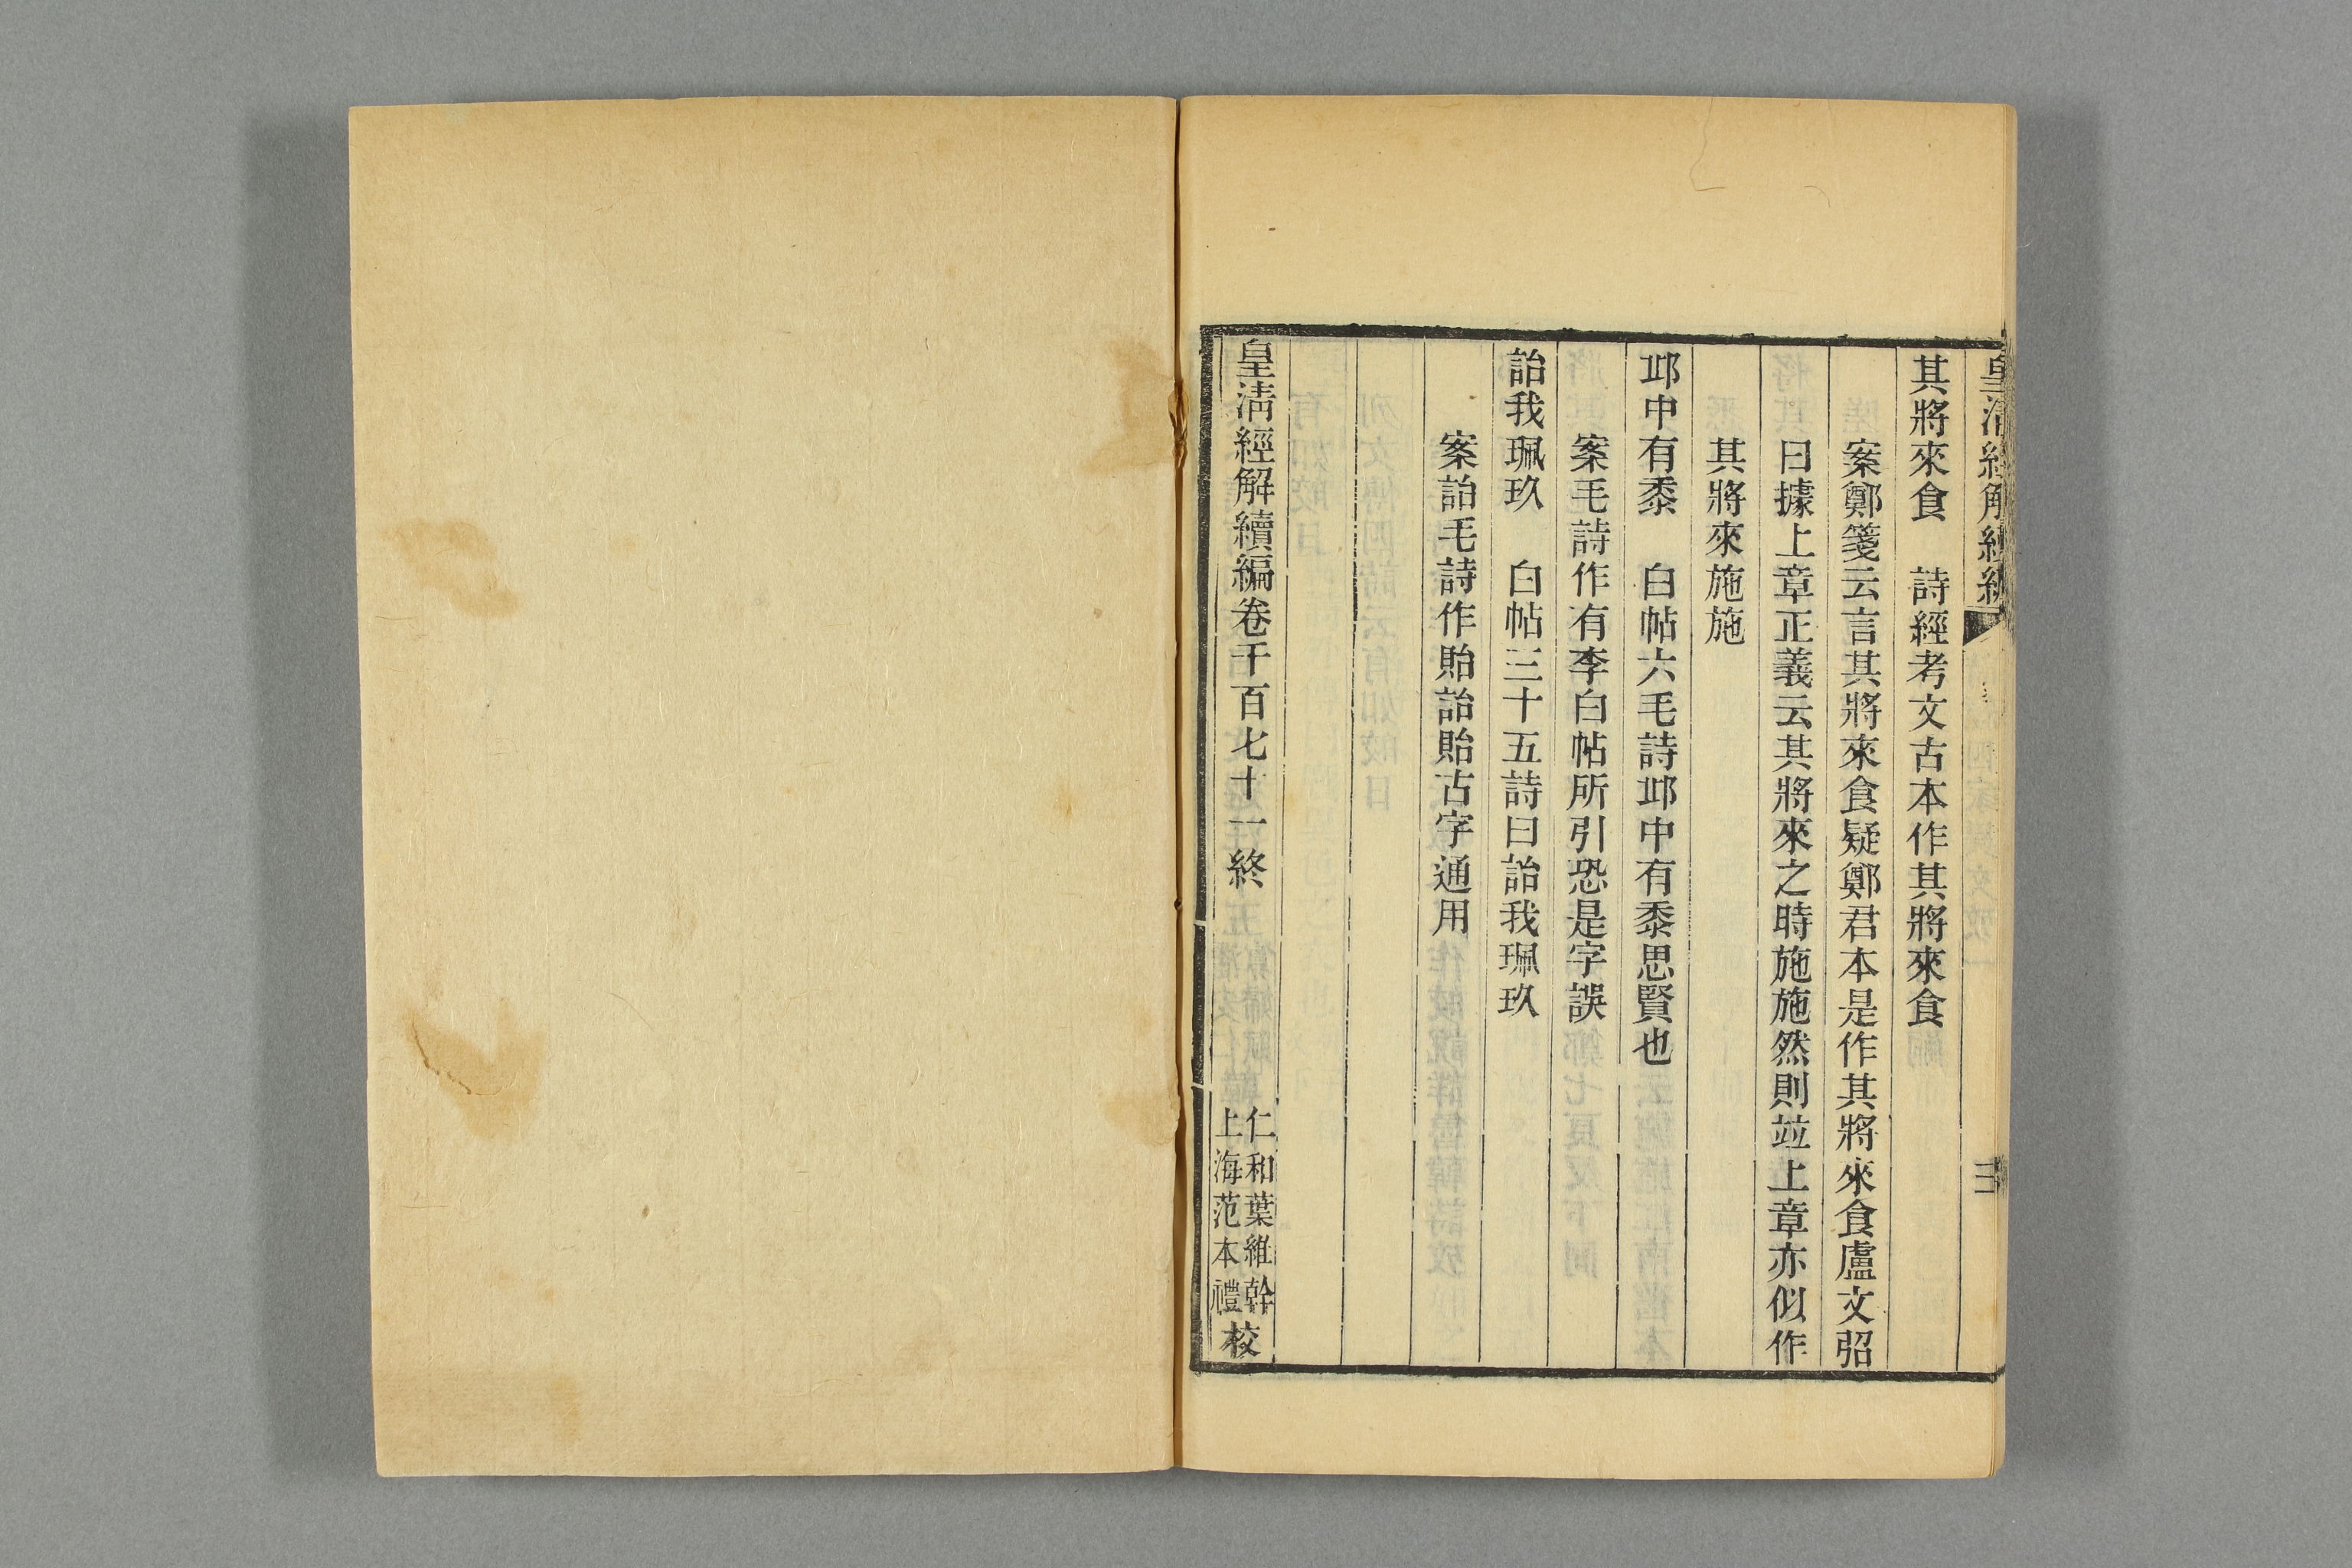 皇清經解續編
三
其將來食　詩經考文古本作其將來食
案鄭箋云言其將來食疑鄭君本是作其將來食盧文弨
曰據上章正義云其將來之時施施然則並上章亦似作
其將來施施
邱中有黍　白帖六毛詩邱中有黍思賢也
案毛詩作有李白帖所引恐是字誤
詒我珮玖　白帖三十五詩曰詒我珮玖
案詒毛詩作貽詒貽古字通用
皇清經解續編卷千百七十一終
仁和葉維幹
上海范本禮
校